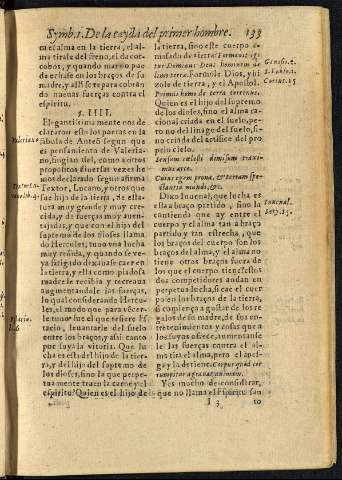 Symb.1. De la cayda del primer hombre. 133
ma el alma en la tierra, el al
ma tirale del freno, el da cor
cobos, y quando mas no pue
de echase en los braços de su
madre, y alli se repara cobran
do nueuas fuerças contra el
espiritu.
§. IIII.
Elegantissimamente nos de
clararon esto los poetas en la
Valeriano
fabula de Anteo segun que
es pensamiento de Valeria-
no, fingian del, como a otros
propositos diuersas vezes he
mos declarado segun afirma
Textor, Lucano, y otros que
fue hijo de la tierra, de esta-
tura muy grande y muy cre-
cida, y de fuerças muy auen-
tajadas, y que con el hijo del
supremo de los dioses llama
do Hercules, tuuo vna lucha
muy reñida, y quando se ve-
ya fatigado dexauase caer en
la tierra, y ella como piadosa
madre le recibia y recreaua
augmentandole las fuerças,
lo qual considerando Hercu-
les, el modo que para vécer-
le tomo fue el que refiere Es
tacio, leuantarle del suelo
entre los braços, y assi: tanto
que suya la vitoria. Que lu
cha es esta del hijo de la tier-
ra, y del hijo del supremo de
los dioses, sino la que perpe-
tua mente traen la carne y el
espiritu? Quien es el hijo de
la tierra, sino este cuerpo a-
masado de tierra: Formauit igi
Genesis.2.
tur Dominus Deus hominem de
limo terra. Formole Dios, y hi
zole de tierra, y el Apostol.
Primus homo de terra terrenus.
Quien es el hijo del supremo
de los dioses, sino el alma ra-
cional criada en el suelo, pe-
ro no del linage del suelo, si-
no criada del artifice del pro
pio cielo.
Sensum cælesti demissum traxi-
mus arce.
Cuius egent prona, & terram spe-
ctantia mundi, &c.
Iuuenal.
Saty.15.
Dixo Iuuenal, que lucha es
esta a braço partido, sino la
contienda que ay entre el
cuerpo y el alma tan a braço
partido y tan estrecha, que
los braços del cuerpo son los
braços del alma, y el alma no
tiene otros braços fuera de
los que el cuerpo tiene? estos
dos competidores andan en
perpetua lucha, si cae el cuer
po en los braços de la tierra,
si comiença a gustar de los re
galos de su madre, de sus en-
tretenimientos y cosas que a
los suyos ofrece, aumentanse
le las fuerças contra el al-
ma tira el alma, pero el apesi-
ga y la detiene. Corpus quod cor
rumpitur aggrauat animam.
Yes mucho de considerar,
que no llama el Espiritu san
I 3 to